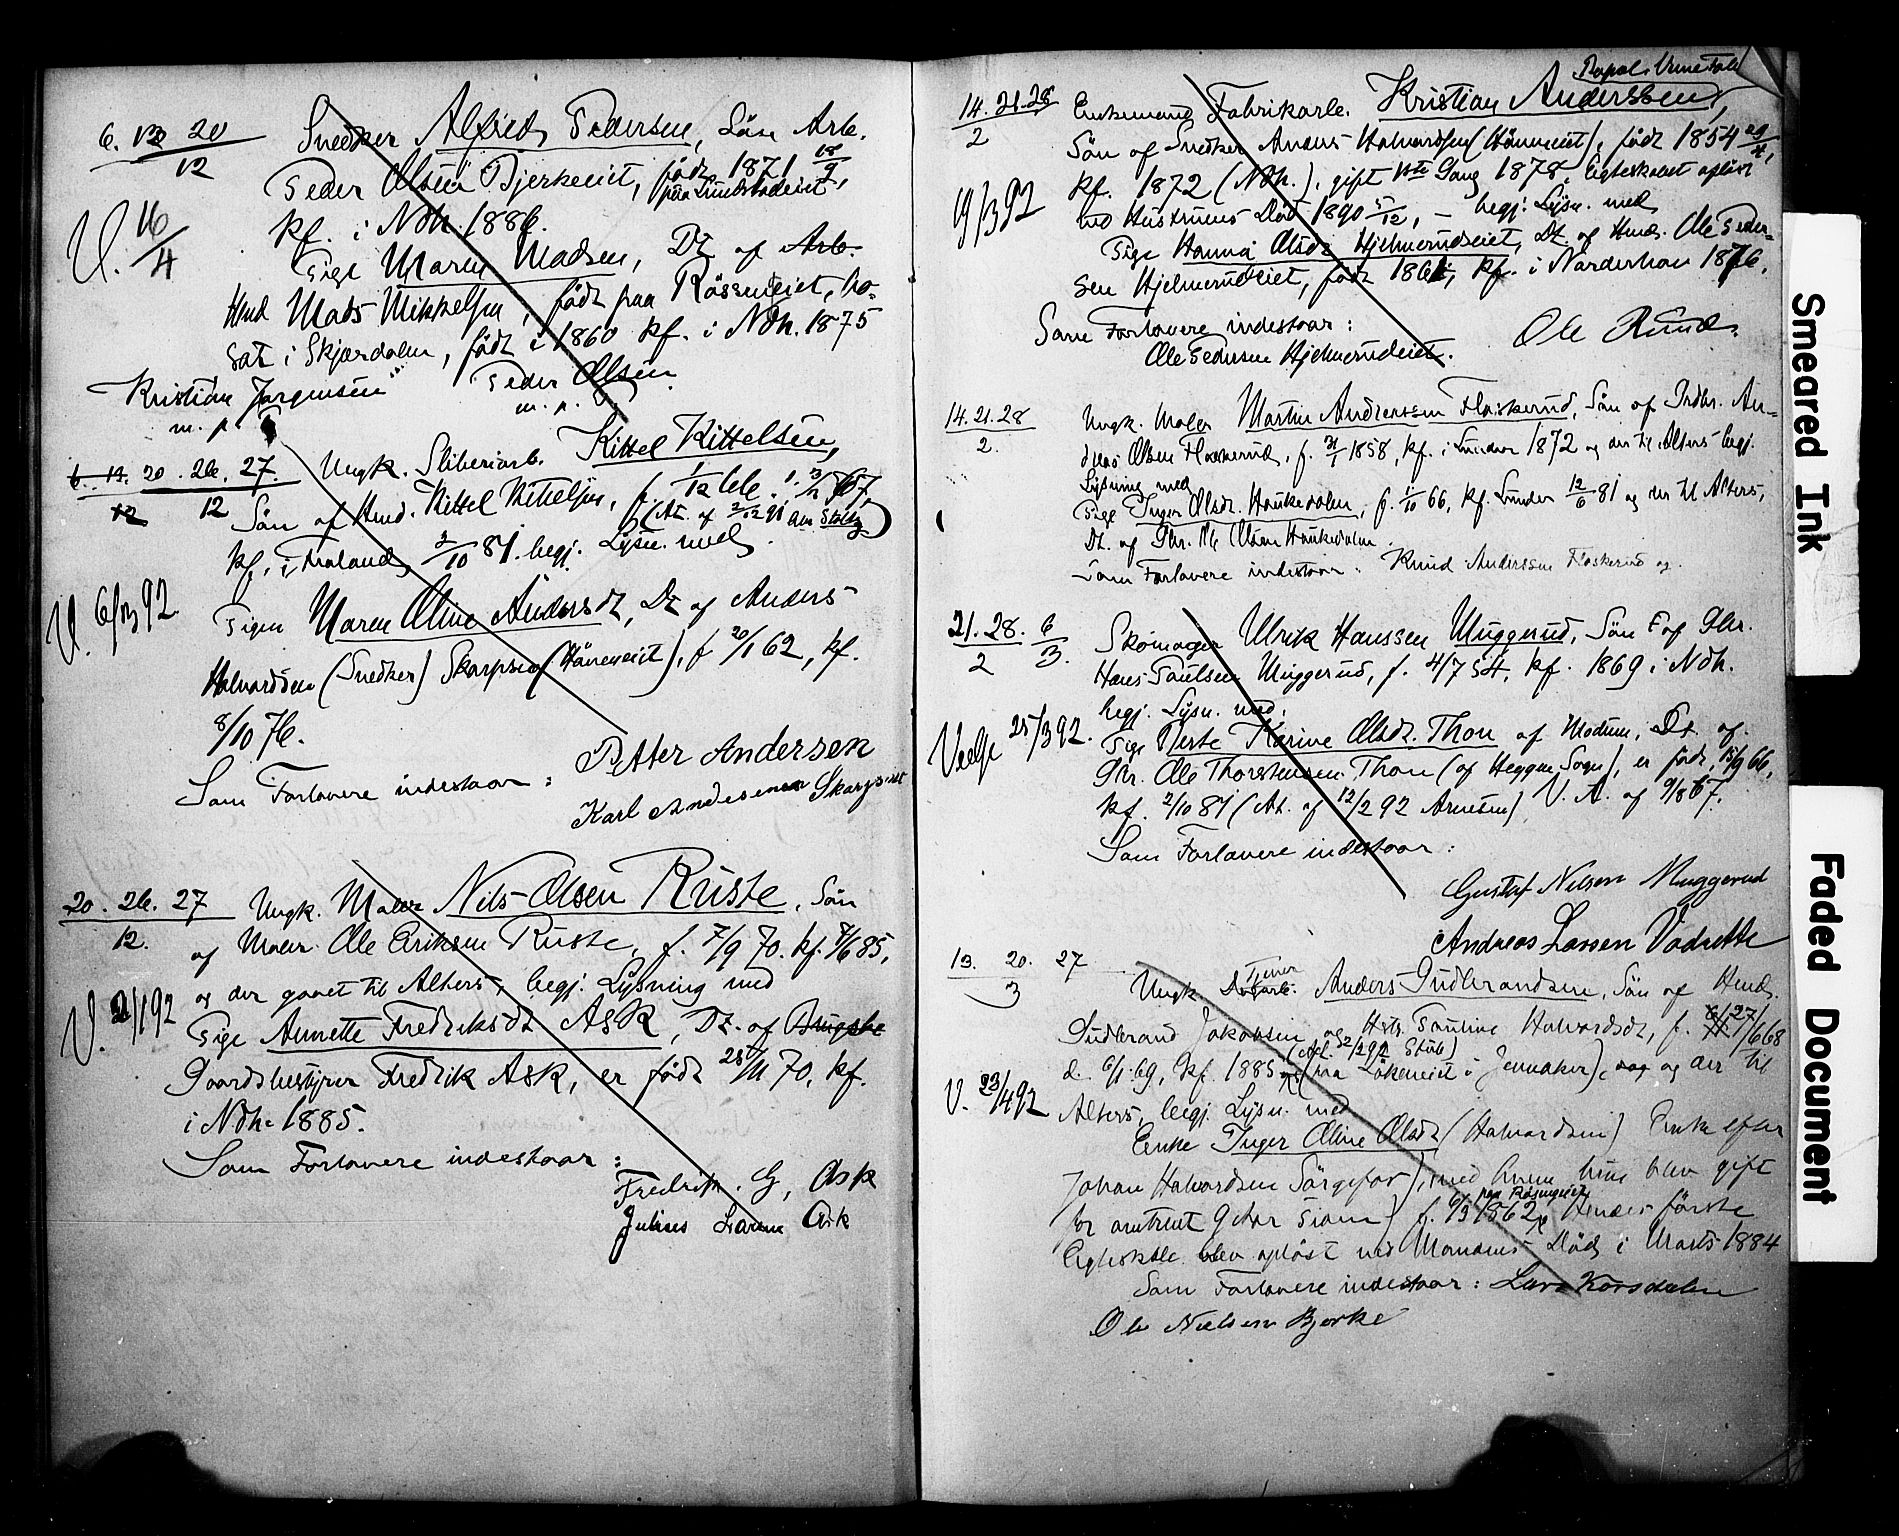 6. 13 20
12
Snedker Alfred Pedersen, Sön Arb.
Peder Olsen Bjerkeeiet, födt 1871 18/9,
paa Lundstadeiet
kf. i Ndh. 1886.
V. 16/4
Pige Maren Madsen, Dt af Arb.
Hmd Mads Mikkelsen, födt paa Rösseneiet, bo-
sat i Skjærdalen, födt i 1860 kf. i Ndh. 1875
Kristian Jörgensen Peder Olsen
m. p. m. p.
6. 13. 20. 26. 27.
12 12
Ungk. Sliberiarb. Kittel Kittelsen,
Sön af Hmd. Kittel Kittelsen, f. 1/12 66
(At. af 2/12 91 Stoltz)
kf. i Froland 2/10 81. begj. Lysn. med
V. 6/3 92
Pigen Maren Oline Andersdt, Dt af Anders
Halvordsen (Snedker) Skarpsno (Höneneiet), f 20/1 62, kf.
8/10 76.
Som Forlovere indestaar: Petter Andersen
Karl Andersen Skarpseiet
20. 26. 27
12.
Ungk. Maler Nils Olsen Ruste, Sön
af Maler Ole Eriksen Ruste, f. 7/9 70. kf. 85,
og der gaaet til Alters, begj. Lysning med
V. 2/1 92
Pige Annette Fredriksdt Ask, Dt. af Brugsbe
Gaardsbestyrer Fredrik Ask, er födt 28/11 70, kf.
i Ndh. 1885.
Som Forlovere indestaar:
Fredrik. G. Ask
Julius Larsen Ask
14. 21. 28
2
Enkemand Fabrikarb. Kristian Anderssen,
Sön af Snedker Anders Halvordsen (Höneneiet), födt 1854
kf. 1872 (Ndh.), gift 1ste Gang 1878, Egteskabet oplöst
ved Hustruens Död 1890 5/12, – begj. Lysn. med
19/3 92
Pige Hanna Olsdt Hjelmerudeiet, Dt. af Hmd. Ole Peder-
sen Hjelmerudeiet, födt 1861, kf. i Norderhov 1876.
Som Forlovere indestaar: Ole Rund
Ole Pedersen Hjelmerudeiet.
14. 21. 28
2.
Ungk. Maler Martin Andreassen Flaskerud, Sön af Indhr. An-
dreas Olsen Flaskerud, f. 31/1 1858, kf. i Lunder 1872 og der til Alters begj.
Lysning med
Pige Inger Olsdt. Haukedalen, f. 1/10 66, kf. Lunder 12/6 81 og der til Alters,
Dt. af Gbr. Ole Olsen Haukedalen.
Som Forlovere indestaar: Knud Andersen Flaskerud og
21. 28. 6
2 3.
Skomager Ulrik Hanssen Muggerud, Sön af Gbr.
Hans Paulsen Muggerud, f. 4/7 54, kf. 1869 i Ndh.
begj. Lysn. med:
Viede 25/3 92.
Pige Berte Karine Olsdt. Thon af Modum, Dt. af
Gbr. Ole Thorstensen Thon (af Heggen Sogn), er födt 15/9 66,
kf. 2/10 81 (At. af 12/2 92 Arnesen), V. A. af 9/8 67.
Som Forlovere indestaar:
Gustaf Nilsen Muggerud
Andreas Larsen Vadsette
13. 20. 27
3
Ungk. Tjener Anders Gulbrandsen, Sön af Hmd.
Gulbrand Jakobsen og Hstr. Pauline Halvordsdt, f. 27/6 68
d. 6/1 69, kf. 1885 (fra Lökeneiet i Jevnaker), og der til
(Att. 2/2 92 Stub)
V. 23/4 92
Alters, begj. Lysn. med
Enke Inger Oline Olsdt (Halvordsen) Enke efter
Johan Halvordsen Sörgefos), med hvem hun blev gift
for omtrent 9 Aar siden) f. 6/3 1862, Hendes förste
paa Rösengeiet
Egteskab blev oplöst ved Mandens Död i Marts 1884
Som Forlovere indestaar: Lars Korsdalen
Ole Nielsen Bjerke
Smeared Ink
Faded Document